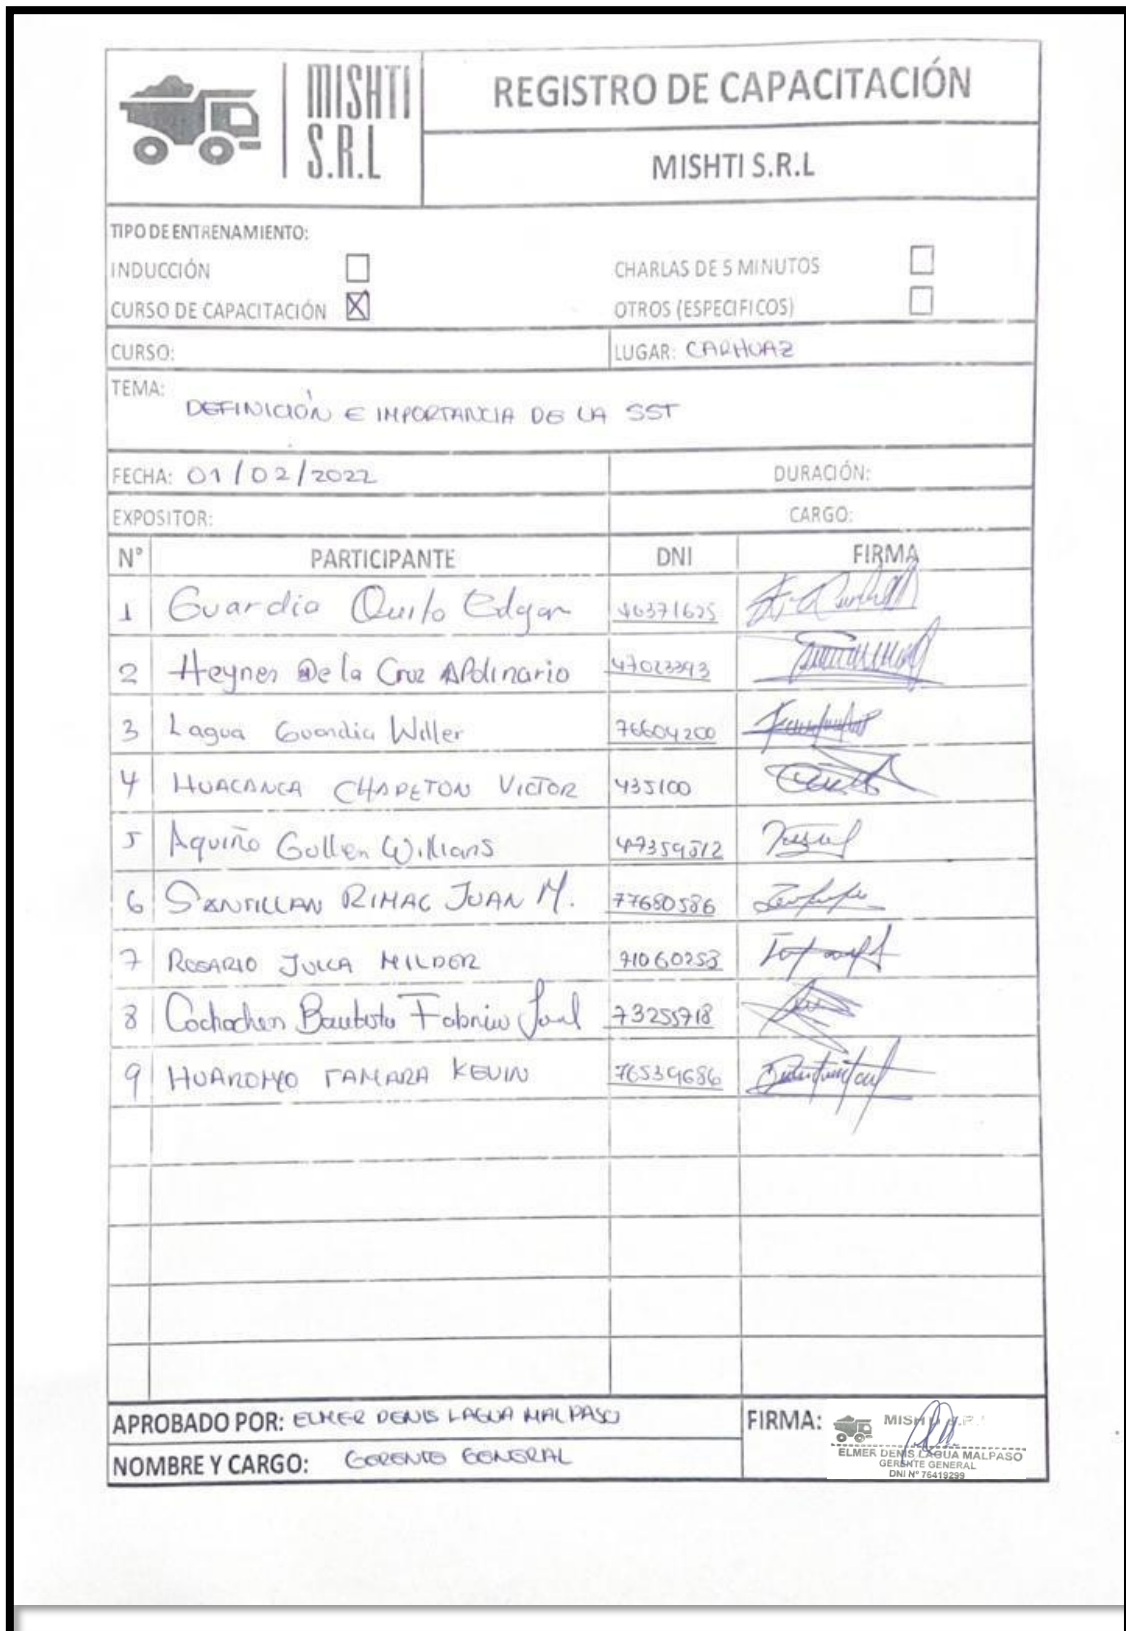 MISHTI
S.R.L
REGISTRO DE CAPACITACIÓN
MISHTI S.R.L
TIPO DE ENTRENAMIENTO:
INDUCCIÓN CHARLAS DE 5 MINUTOS
CURSO DE CAPACITACIÓN X OTROS (ESPECIFICOS)
CURSO: LUGAR: CARHUAZ
TEMA:
DEFINICIÓN E IMPORTANCIA DE LA SST
FECHA: 01/02/2022 DURACIÓN:
EXPOSITOR: CARGO:
N° PARTICIPANTE DNI FIRMA
1 Guardia Quito Edgar 40371625
2 Heyner De la Cruz Apolinario 47023393
3 Lagua Guardia Willer 76604200
4 HUACANCA CHAPETON VICTOR 435100
5 Aquiño Gullen Willians 47359512
6 SANTILLAN RIMAC JUAN M. 77680586
7 ROSARIO JULCA MILDER 71060253
8 Cochachin Bautista Fabricio 73255718
9 HUAROMO TAMARA KEVIN 76539686
APROBADO POR: ELMER DENIS LAGUA MALPASO FIRMA:
NOMBRE Y CARGO: GERENTE GENERAL
MISHTI S.R.L
ELMER DENIS LAGUA MALPASO
GERENTE GENERAL
DNI N° 76419299